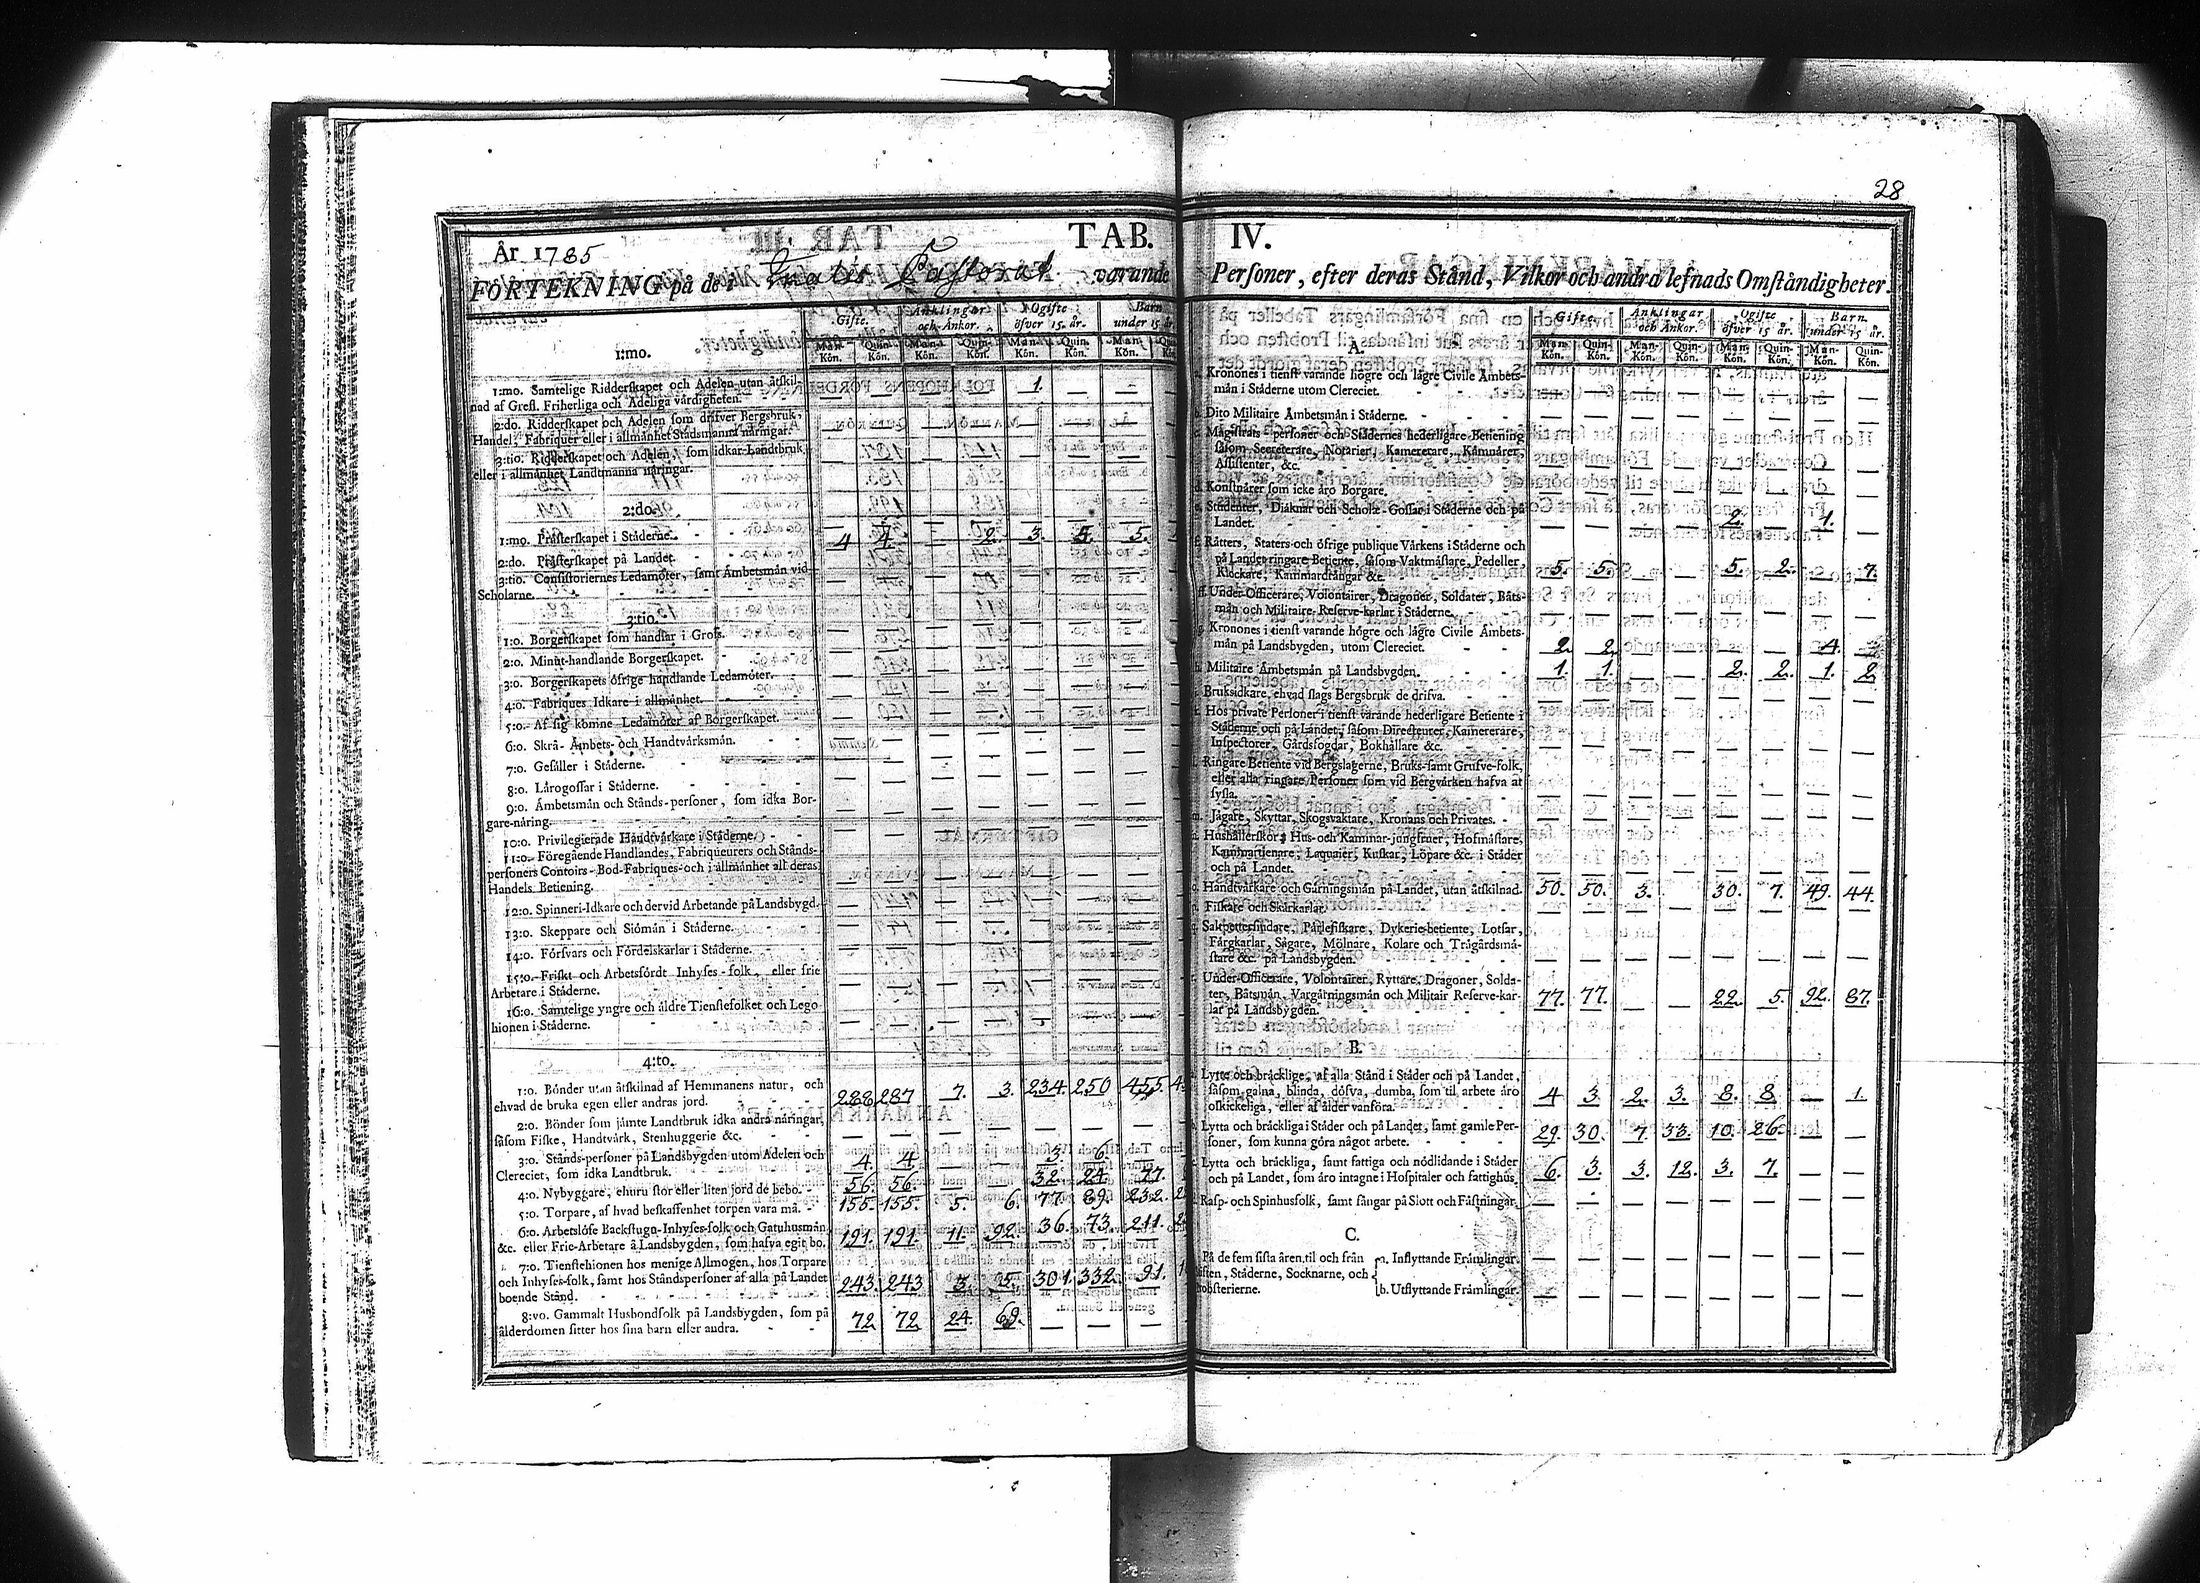 28
År 1785 TAB. IV.
FÖRTEKNING på de i Pastorat varande Personer, efter deras Stånd, Vilkor och andra lefnads Omståndigheter.
Gifte. Änklingar och Änkor. Ogifte öfver 15. år. Barn under 15 år
Man-Kön. Quin-Kön. Man-Kön. Quin-Kön. Man-Kön. Quin-Kön. Man-Kön. Quin-Kön.
1:mo.
1:mo. Samtelige Ridderskapet och Adelen utan åtskil-
nad af Grefl. Friherliga och Adeliga vårdigheten. — — — — 1. — —
2:do. Ridderskapet och Adelen som drifver Bergsbruk,
Handel, Fabriquer eller i allmånhet Stadsmanna nåringar. — — — — — — —
3:tio. Ridderskapet och Adelen, som idkar Landtbruk
eller i allmånhet Landtmanna nåringar. — — — — — — —
2:do.
1:mo. Pråsterskapet i Ståderne.
2:do. Pråsterskapet på Landet. 4 4. — 2. 3. 5. 5.
3:tio. Consistoriernes Ledamöter, samt Åmbetsmån vid
Scholarne.
3:tio.
1:o. Borgerskapet som handlar i Gross. — — — — — — —
2:o. Minut-handlande Borgerskapet. — — — — — — —
3:o. Borgerskapets öfrige handlande Ledamöter. — — — — — — —
4:o. Fabriques Idkare i allmånhet. — — — — — — —
5:o. Af sig komne Ledamöter af Borgerskapet. — — — — — — —
6:o. Skrå- Åmbets- och Handtvårksmån. — — — — — — —
7:o. Gesåller i Ståderne. — — — — — — —
8:o. Lårogossar i Ståderne. — — — — — — —
9:o. Åmbetsmån och Stånds-personer, som idka Bor-
gare-nåring. — — — — — — —
10:o. Privilegierade Handtvårkare i Ståderne. — — — — — — —
11:o. Föregående Handlandes, Fabriqueurers och Stånds-
personers Contoirs- Bod-Fabriques- och i allmånhet all deras
Handels Betiening. — — — — — — —
12:o. Spinneri-Idkare och dervid Arbetande på Landsbygd. — — — — — — —
13:o. Skeppare och Siömån i Ståderne. — — — — — — —
14:o. Försvars och Fördelskarlar i Ståderne. — — — — — — —
15:o. Friskt och Arbetsfördt Inhyses-folk, eller frie
Arbetare i Ståderne. — — — — — — —
16:o. Samtelige yngre och åldre Tienstefolket och Lego-
hionen i Ståderne. — — — — — — —
4:to.
1:o. Bönder utan åtskilnad af Hemmanens natur, och
ehvad de bruka egen eller andras jord. 288 287 7. 3. 234. 250 455.
2:o. Bönder som jämte Landtbruk idka andra nåringar,
såsom Fiske, Handtvårk, Stenhuggerie &c. — — — — — — —
3:o. Stånds-personer på Landsbygden utom Adelen och
Clereciet, som idka Landtbruk. 4. 4 — — 3 6. —
4:o. Nybyggare, ehuru stor eller liten jord de bebo. 56. 56. — — 32. 24.
5:o. Torpare, af hvad beskaffenhet torpen vara må. 155. 155. 5. 6. 77. 89. 232.
6:o. Arbetslöse Backstugu-Inhyses-folk och Gatuhusmån
&c. eller Frie-Arbetare å Landsbygden, som hafva egit bo. 191. 191. 11. 92. 36. 73. 211.
7:o. Tienstehionen hos menige Allmogen, hos Torpare
och Inhyses-folk, samt hos Ståndspersoner af alla på Landet
boende Stånd. 243. 243 3 5. 301. 332. 91.
8:vo. Gammalt Husbondfolk på Landsbygden, som på
ålderdomen sitter hos sina barn eller andra. 72 72 24. 69. — — —
Gifte. Änklingar och Änkor. Ogifte öfver 15 år. Barn under 15 år.
Man-Kön. Quin-Kön. Man-Kön. Quin-Kön. Man-Kön. Quin-Kön. Man-Kön. Quin-Kön.
A.
Kronones i tienst varande högre och lågre Civile Åmbets-
mån i Ståderne utom Clereciet. — — — — — — — —
Dito Militaire Åmbetsmån i Ståderne. — — — — — — — —
Magistrats-personer och Stådernes hederligare Betiening
såsom Secreterare, Notarier, Kamererare, Kåmnårer,
Assistenter, &c. — — — — — — — —
Konstnårer som icke åro Borgare. — — — — — — — —
Studenter, Diåknar och Schole-Gossar i Ståderne och på
Landet. — — — — 2. — 1. —
Råtters, Staters och öfrige publique Vårkens i Ståderne och
på Landet ringare Betiente, såsom Vaktmåstare, Pedeller,
Klockare, Kammardrångar &c. 5. 5. — — 5. 2. — 7.
Under-Officerare, Volontairer, Dragoner, Soldater, Båts-
mån och Militaire-Reserve-karlar i Ståderne. — — — — — — —
Kronones i tienst varande högre och lågre Civile Åmbets-
mån på Landsbygden, utom Clereciet. 2. 2. — — — — 4.
Militaire Åmbetsmån på Landsbygden. 1. 1. — — 2. 2. 1. 2
Bruksidkare, ehvad slags Bergsbruk de drifva. — — — — — — — —
Hos private Personer i tienst varande hederligare Betiente i
Ståderne och på Landet, såsom Directeurer, Kamererare,
Inspectorer, Gårdsfogdar, Bokhållare &c. — — — — — — — —
Ringare Betiente vid Bergslagerne, Bruks- samt Grufve-folk,
eller alla ringare Personer som vid Bergvårken hafva at
sysla. — — — — — — — —
Jågare, Skyttar, Skogsvaktare, Kronans och Privates. — — — — — — — —
Hushållerskor, Hus- och Kammar-jungfruer, Hofmåstare,
Kammartienare, Laquaier, Kuskar, Löpare &c. i Ståder
och på Landet. — — — — — — — —
Handtvårkare och Gårningsmån på Landet, utan åtskilnad. 50. 50. 3. — 30. 7. 49. 44.
Fiskare och Skårkarlar. — — — — — — — —
Saltpettersiudare, Pårlefiskare, Dykerie-betiente, Lotsar,
Fårgkarlar, Sågare, Mölnare, Kolare och Trågårdsmå-
stare &c. på Landsbygden. — — — — — — — —
Under-Officerare, Volontairer, Ryttare, Dragoner, Solda-
ter, Båtsmån, Vargårningsmån och Militair Reserve-kar-
lar på Landsbygden. 77. 77. — — 22. 5. 92. 87.
B.
Lytte och bråcklige, af alla Stånd i Ståder och på Landet,
såsom galna, blinda, döfva, dumba, som til arbete åro
oskickeliga, eller af ålder vanföra. 4 3. 2. 3. 8. 8 — 1.
Lytta och bråckliga i Ståder och på Landet, samt gamle Per-
soner, som kunna göra något arbete. 29. 30. 7. 33. 10. 26. — —
Lytta och bråckliga, samt fattiga och nödlidande i Ståder
och på Landet, som åro intagne i Hospitaler och fattighus. 6 3. 3. 12. 3. 7. — —
Rasp- och Spinhusfolk, samt fångar på Slott och Fåstningar. — — — — — — — —
C.
På de fem sista åren, til och från a. Inflyttande Fråmlingar. — — — — — — — —
Ståderne, Socknarne, och
b. Utflyttande Fråmlingar. — — — — — — — —